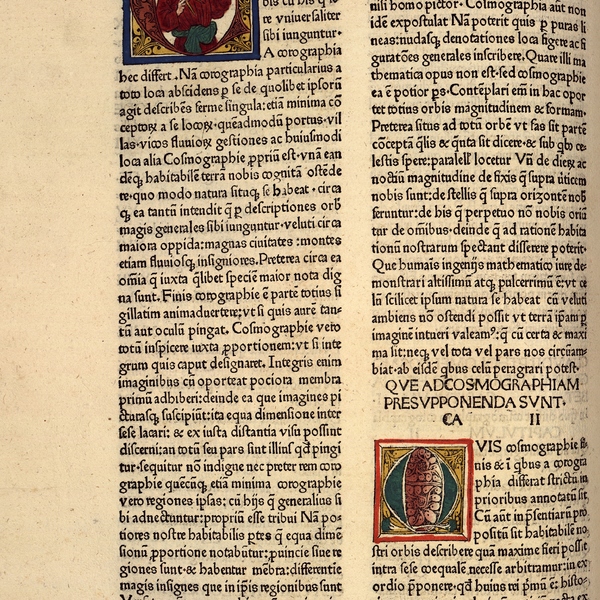 re vniuersaliter
sibi iunguntur·
A corographia
hec differt. Nã corographia particularius a
toto loca abscidens ꝑ se de quolibet ipsorũ
agit describẽs ferme singula: etiã minima cõ
ceptoꝝ a se locoꝝ· quẽadmodũ portus· vil
las· vicos fluuioꝝ gestiones ac huiusmodi
loca alia Cosmographie ꝓpriũ est· vnã ean
dẽqꝫ habitabilẽ terrã nobis cognitã ostẽde
re· quo modo natura situqꝫ se habeat · circa
ꝗ ea tantũ intendit ꝗ ꝑ descriptiones orb
magis generales sibi iunguntur· veluti circa
maiora oppida: magnas ciuitates : montes
etiam fluuiosqꝫ insigniores. Preterea circa ea
om̃ia ꝗ iuxta q̃libet speciẽ maior nota dig
na sunt. Finis corographie ẽ partẽ totius si
gillatim animaduertere; vt si quis aurẽ tan⸗
tũ aut oculũ pingat. Cosmographie vero
totũ inspicere iuxta ꝓportionem: vt si inte
grum quis caput designaret. Integris enim
imaginibus cũ oporteat pociora membra
primũ adhiberi: deinde ea que imagines pi
cturasqꝫ suscipiũt: ita equa dimensione inter
sese locari: & ex iusta distantia visu possint
discerni: an totũ seu pars sunt illius qd̃ pingi
tur· sequitur nõ indigne nec preter rem coro
graphie quẽcũqꝫ etiã minima corographie
vero regiones ipsas: cũ hijs ꝗ generalius si
bi adnectuntur: propriũ esse tribui Nã po⸗
tiores nostre habitabilis ptes ꝗ equa dimẽ
sionũ ꝓportione notabũtur: ꝓuincie siue re
giones sunt· & habentur mẽbra: differentie
magis insignes que in ip̃is regionibus sunt
nili homo pictor· Cosmographia aũt non
idẽ expostulat Nã poterit quis ꝑ puras li
neas: nudasqꝫ denotationes loca figere ac fi
guratões generales inscribere. Quare illi ma
thematica opus non est· sed cosmographie
ea ẽ potior ꝑs· Contẽplari em̃ in hac opor
tet totius orbis magnitudinem & formam·
Preterea situs ad totũ orbẽ vt fas sit partẽ
cõceptã q̃lis & q̃nta sit dicere· & sub q̃bo ce⸗
lestis spere: paralell locetur Vñ de dieꝝ ac
noctiũ magnitudine de fixis ꝗ supra ùticem
nobis sunt: de stellis ꝗ supra orizontẽ nob̃
feruntur: de his ꝗ perpetuo nõ nobis oriũ
tur de om̃ibus· deinde ꝗ ad rationẽ habita
tionũ nostrarum spectant disserere poterit·
Que humais ingenijs mathematico iure de⸗
monstrari altissimũ atqꝫ pulcerrimũ ẽ: vt ce
lũ scilicet ipsum natura se habeat cũ veluti
ambiens nõ ostendi possit vt terrã ip̃am ꝑ
imaginẽ intueri valeamꝰ: ꝗ cũ certa & maxi
ma sit: neqꝫ vel tota vel pars nos circũam⸗
biat· ab eisdẽ q̃bus celũ peragrari potest·
QVE AD COSMOGRAPHIAM
PRESVPPONENDA SVNT·
CA II
VIS cosmographie fi⸗
nis & ĩ q̃bus a corogra
phia differat strictũ in
prioribus annotatũ sit·
Cũ aũt in p̃sentiarũ pro
positũ sit habitabilẽ no
stri orbis describere quã maxime fieri possit
intra sese coequalẽ necesse arbitramur: in ex
ordio ꝓponere· qd̃ huius rei p̃mũ ẽ: histo⸗